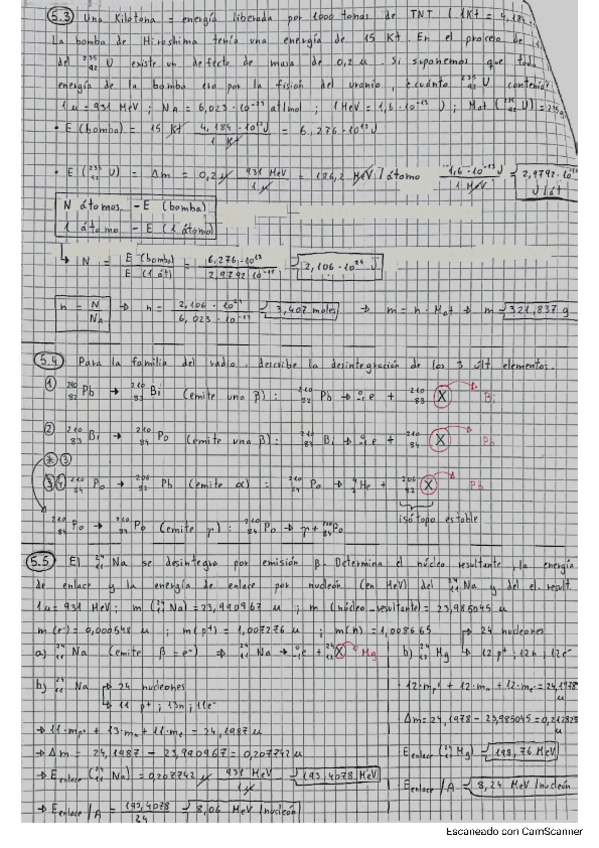 5.3 Una Kilotona = energía liberada por 1000 tonas de TNT (1Kt = 4,184
La bomba de Hiroshima tenía una energía de 15 Kt. En el proceso de
del ²³⁵₉₂U existe un defecto de masa de 0,2 u. Si suponemos que toda
energía de la bomba era por la fisión del uranio, ¿cuánto ²³⁵₉₂U contenía
1u = 931 MeV ; NA = 6,023 · 10⁻²³ at/mol ; 1MeV = 1,6 · 10⁻¹³ J ; Mat (²³⁵₉₂U) = 235g
• E (bomba) = 15 Kt 4,184 · 10¹²J / 1 Kt = 6,276 · 10¹³ J
• E (²³⁵₉₂U) = Δm = 0,2 u 931 MeV / 1 u = 186,2 MeV / átomo 1,6 · 10⁻¹³ J / 1 MeV = 2,9792 · 10 J/át
N átomos - E (bomba)
1 átomo - E (1 átomo)
↳ N = E (bomba) / E (1 át) = 6,276 · 10¹³ / 2,9792 · 10⁻¹¹ = 2,106 · 10²⁴ J
n = N / NA ⇒ n = 2,106 · 10²⁴ / 6,023 · 10⁻²³ = 3,407 moles ⇒ m = n · Mat ⇒ m = 321,837 g
5.4 Para la familia del radio, describe la desintegración de los 3 últ elementos.
① ²¹⁰₈₂Pb → ²¹⁰₈₃Bi (emite una β) : ²¹⁰₈₂Pb → ⁰₋₁e + ²¹⁰₈₃X Bi
② ²¹⁰₈₃Bi → ²¹⁰₈₄Po (emite una β) : ²¹⁰₈₃Bi → ⁰₋₁e + ²¹⁰₈₄X Pb
* ③
③ ④ ²¹⁰₈₄Po → ²⁰⁶₈₂Pb (emite α) : ²¹⁰₈₄Po → ⁴₂He + ²⁰⁶₈₂X Pb
isótopo estable
²¹⁰₈₄Po → ²¹⁰₈₄Po (emite γ) : ²¹⁰₈₄Po → γ + ²¹⁰₈₄Po
5.5 El ²⁴₁₁Na se desintegra por emisión β. Determina el núcleo resultante, la energía
de enlace y la energía de enlace por nucleón (en MeV) del ²⁴₁₁Na y del el. result.
1u = 931 MeV ; m (²⁴₁₁Na) = 23,990967 u ; m (núcleo resultante) = 23,985045 u
m(e⁻) = 0,000548 u ; m(p⁺) = 1,007276 u ; m(n) = 1,008665
a) ²⁴₁₁Na (emite β = e⁻) ⇒ ²⁴₁₁Na → ⁰₋₁e + ²⁴₁₂X Mg
b) ²⁴₁₁Na → 24 nucleones
↳ 11 p⁺ ; 13n ; 11e⁻
→ 11·mp⁺ + 13·mn + 11·me = 24,1987 u
→ Δm = 24,1987 - 23,990967 = 0,207742 u
→ Eenlace (²⁴₁₁Na) = 0,207742 u 931 MeV / 1u = 193,4078 MeV
→ Eenlace /A = 193,4078 / 24 = 8,06 MeV/nucleón
→ 24 nucleones
b) ²⁴₁₂Mg → 12 p⁺ ; 12n ; 12e⁻
· 12·mp⁺ + 12·mn + 12·me = 24,1978 u
· Δm = 24,1978 - 23,985045 =
Eenlace (²⁴₁₂Mg) = 198,76 MeV
Eenlace /A = 8,24 MeV/nucleón
Escaneado con CamScanner